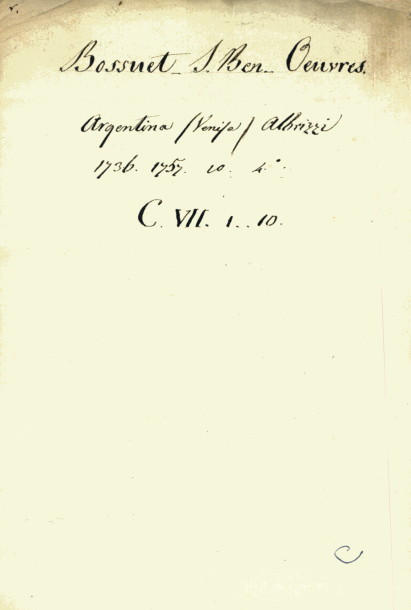 Bossuet J. Ben. Oeuvres.
Argentina (Venisa) Albrizzi
1736. 1757. 10. 4°.
C. VII. 1..10.
C